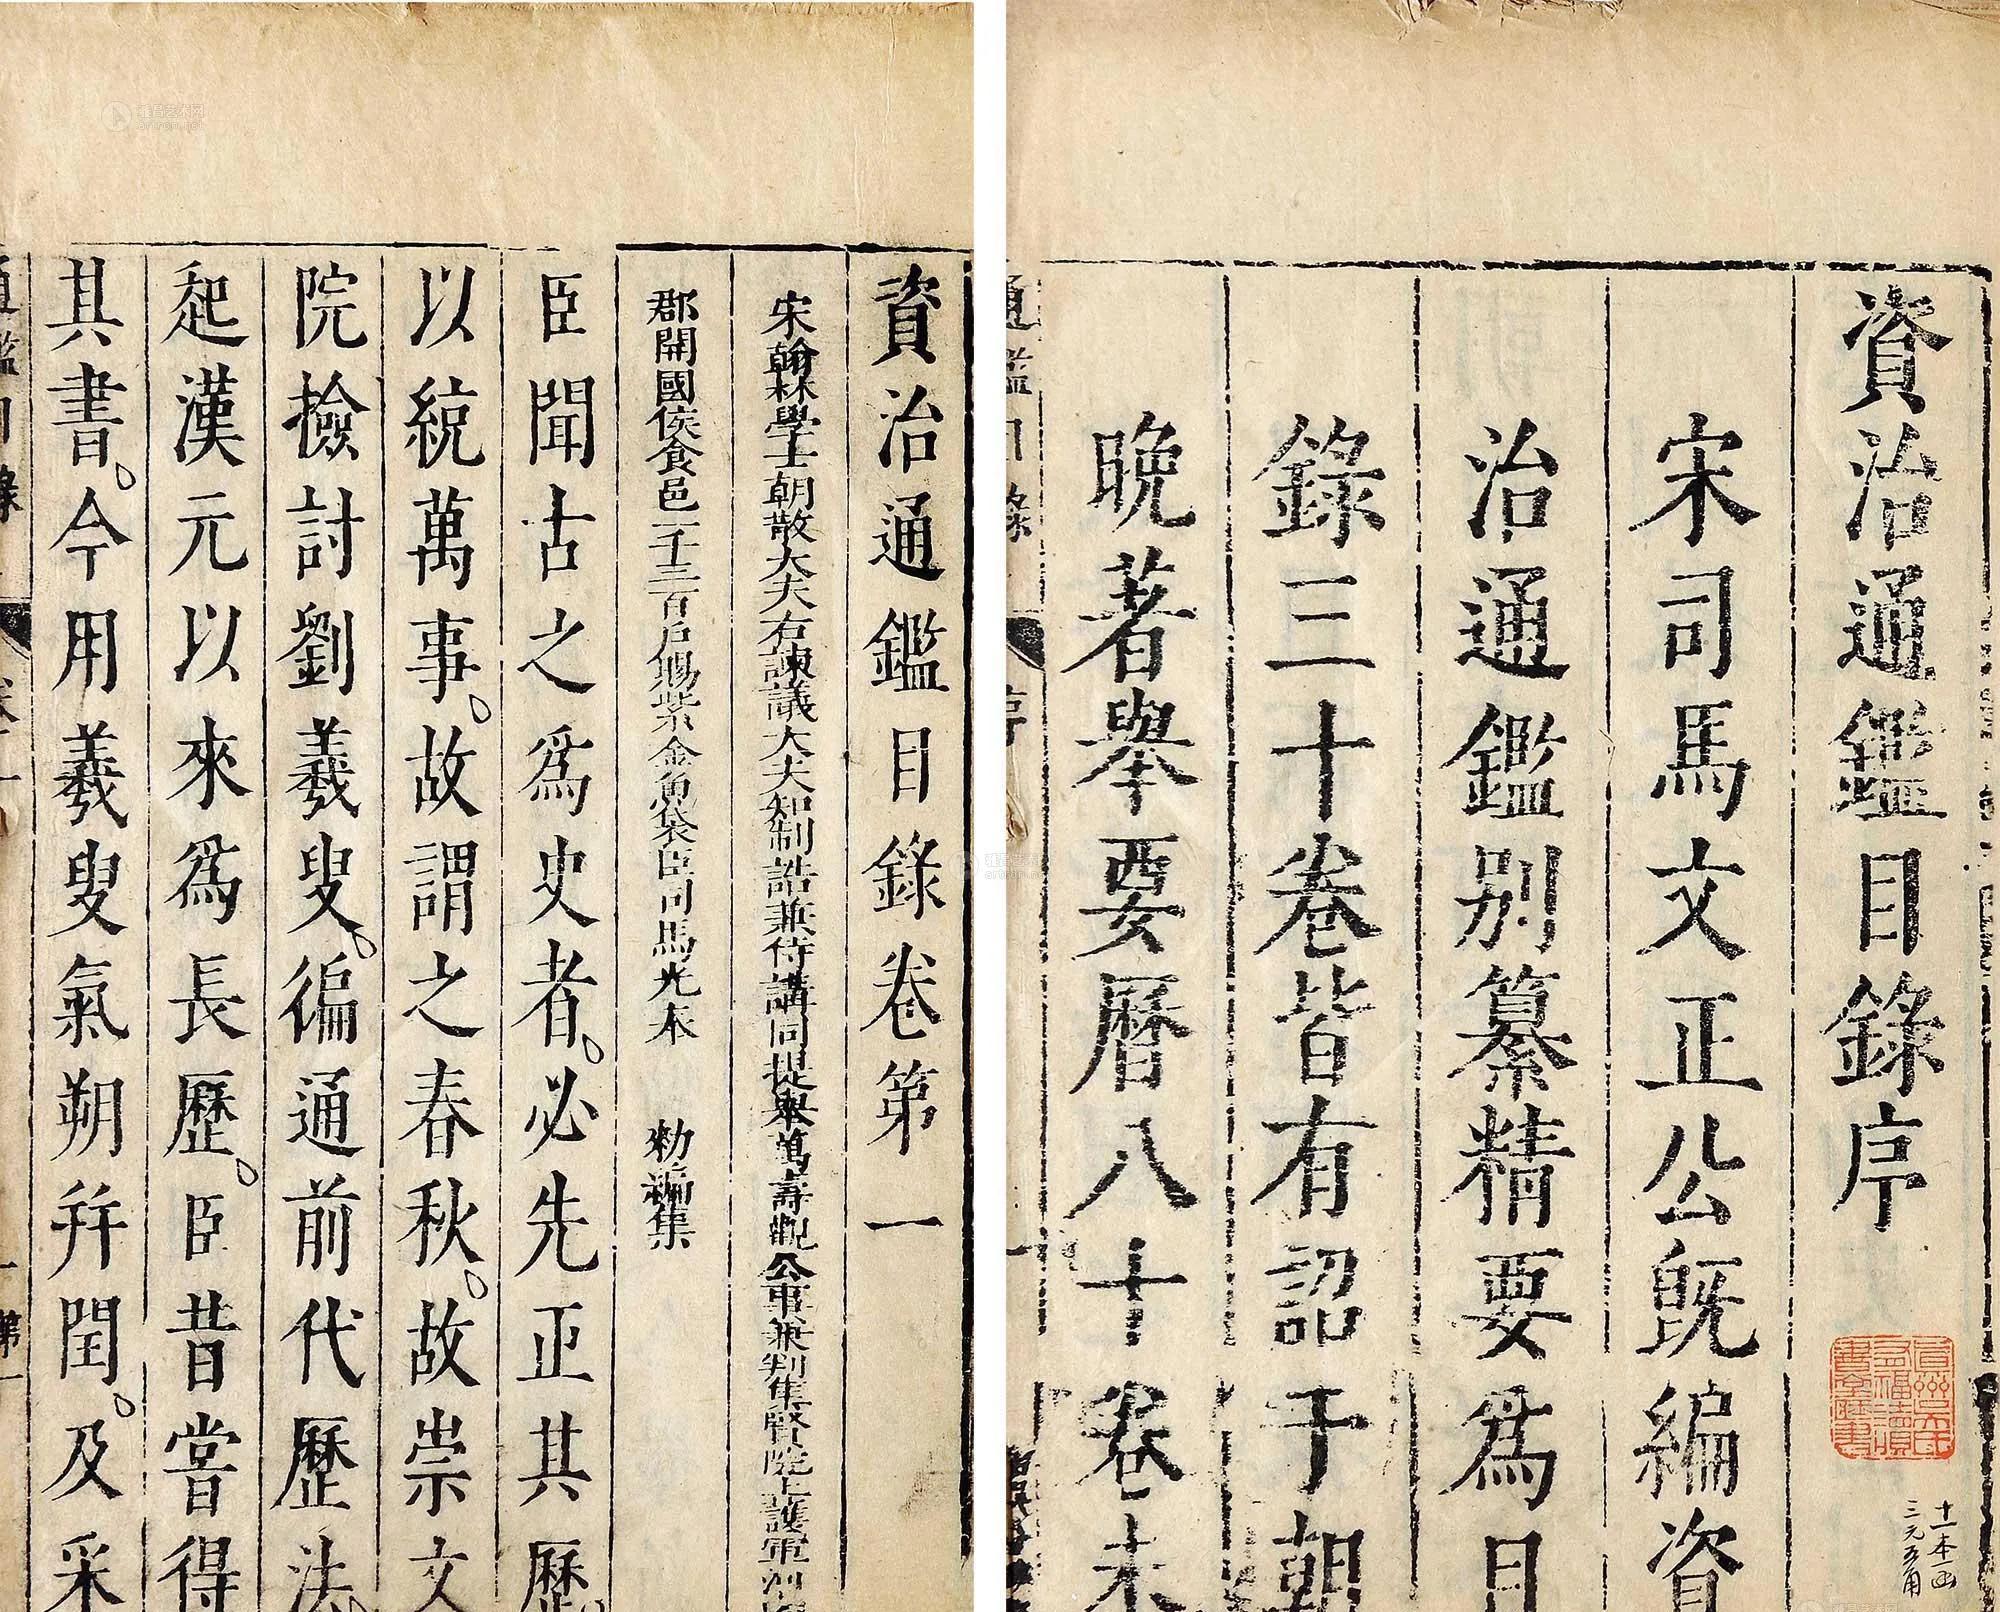 資治通鑑目錄序
宋司馬文正公既編資
治通鑑別纂精要爲目
錄三十卷皆有詔于朝
晩著舉要曆八十卷未
通鑑目錄
序
一
十一本一函
三元五角
資治通鑑目錄卷第一
宋翰林學士朝散大夫右諫議大夫知制誥兼侍講同提舉萬壽觀公事兼判集賢院上護軍河
郡開國侯食邑一千三百戶賜紫金魚袋臣司馬光奉 勑編集
臣聞古之爲史者。必先正其歷
以統萬事。故謂之春秋。故崇文
院檢討劉羲叟。徧通前代歷法。
起漢元以來爲長歷。臣昔嘗得
其書。今用羲叟氣朔并閏。及采
通鑑目錄
卷一
雅昌艺术网
artron.net
雅昌艺术网
artron.net